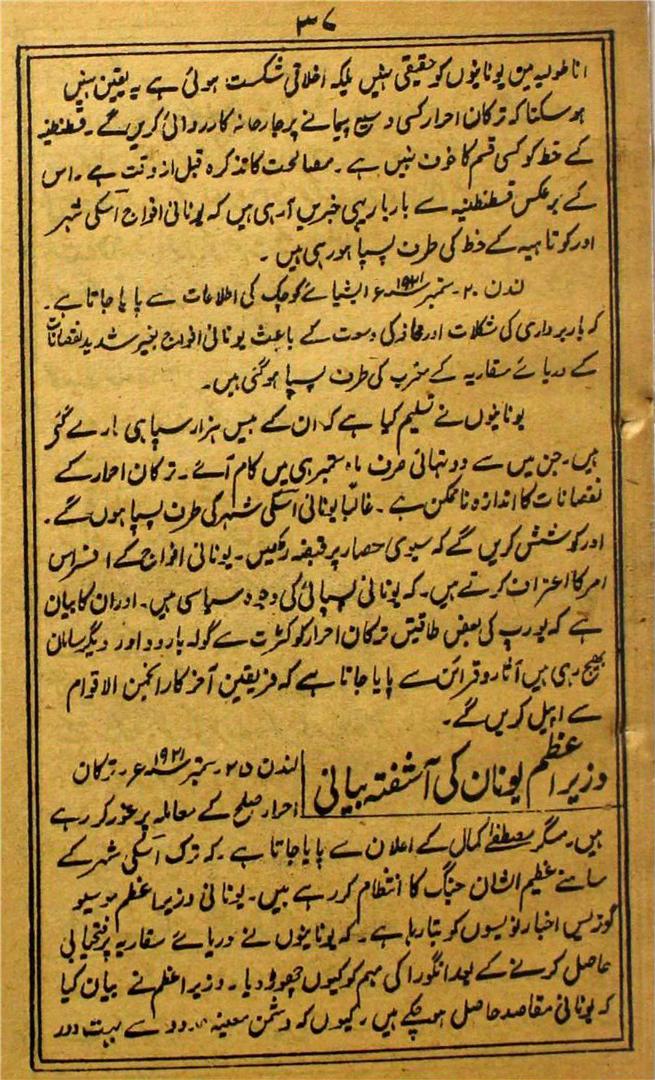 ۳۷
اناطولیہ میں یونانیوں کو حقیقی نہیں بلکہ اخلاقی شکست ہوئی ہے یہ یقین نہیں
ہو سکتا کہ ترکان احرار کسی وسیع پیمانے پر جارحانہ کارروائی کریں گے۔ قسطنطنیہ
کے خط کو کسی قسم کا خوف نہیں ہے۔ مصالحت کا تذکرہ قبل از وقت ہے۔ اس
کے برعکس قسطنطنیہ سے بار بار یہی خبریں آرہی ہیں کہ یونانی افواج اسکی شہر
اور کوتاہیہ کے خط کی طرف پسپا ہو رہی ہیں۔
لندن ۲۰۔ ستمبر ۱۹۲۱ء ایشیائے کوچک کی اطلاعات سے پایا جاتا ہے۔
کہ باربرداری کی مشکلات اور محاذ کی وسعت کے باعث یونانی افواج بغیر شدید نقصانات
کے دریائے سقاریہ کے مغرب کی طرف پسپا ہو گئی ہیں۔
یونانیوں نے تسلیم کیا ہے کہ ان کے بیس ہزار سپاہی مارے گئے
ہیں۔ جن میں سے دو تہائی صرف ماہ ستمبر ہی میں کام آئے۔ ترکان احرار کے
نقصانات کا اندازہ ناممکن ہے۔ غالباً یونانی اسکی شہر کی طرف پسپا ہوں گے۔
اور کوشش کریں گے کہ سیوری حصار پر قبضہ رکھیں۔ یونانی افواج کے افسر اس
امر کا اعتراف کرتے ہیں۔ کہ یونانی پسپائی کی وجوہ سیاسی ہیں۔ اور ان کا بیان
ہے کہ یورپ کی بعض طاقتیں ترکان احرار کو کثرت سے گولہ بارود اور دیگر سامان
بھیج رہی ہیں آثار و قرائن سے پایا جاتا ہے کہ فریقین آخر کار انجمن الاقوام
سے اپیل کریں گے۔
وزیر اعظم یونان کی آشفتہ بیانی
لندن ۲۵۔ ستمبر ۱۹۲۱ء۔ ترکان
احرار صلح کے معاملہ پر غور کر رہے
ہیں۔ مگر مصطفےٰ کمال کے اعلان سے پایا جاتا ہے۔ کہ ترک اسکی شہر کے
سامنے عظیم الشان جنگ کا انتظام کر رہے ہیں۔ یونانی وزیر اعظم موسیو
گوزیس اخبار نویسوں کو بتا رہا ہے۔ کہ یونانیوں نے دریائے سقاریہ پر فتحیابی
حاصل کرنے کے بعد انگورا کی مہم کو کیوں چھوڑ دیا۔ وزیر اعظم نے بیان کیا
کہ یونانی مقاصد حاصل ہو چکے ہیں۔ کیوں کہ دشمن معینہ سے بہت دور